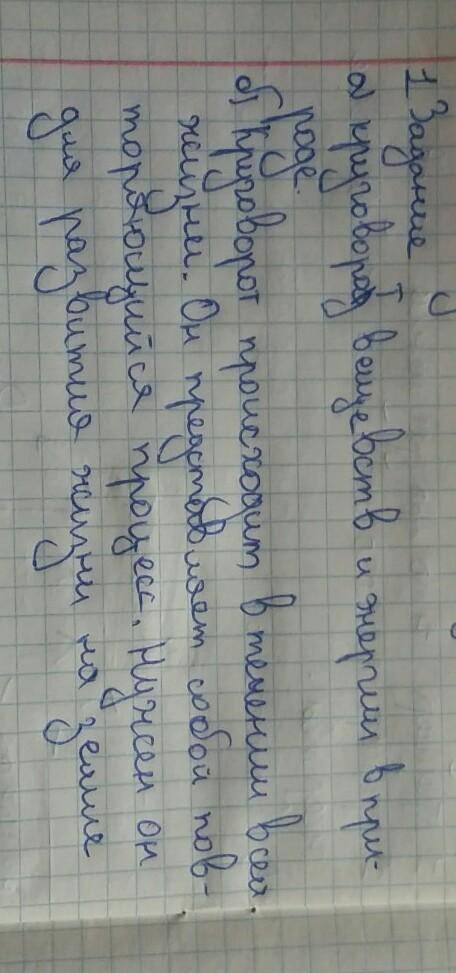 1 Задание
а) круговорот вещевств и энергии в при-
роде.
б) Круговорот происходит в течении всей
жизни. Он представляет собой пов-
торяющийся процесс. Нужен он
для развития жизни на земле